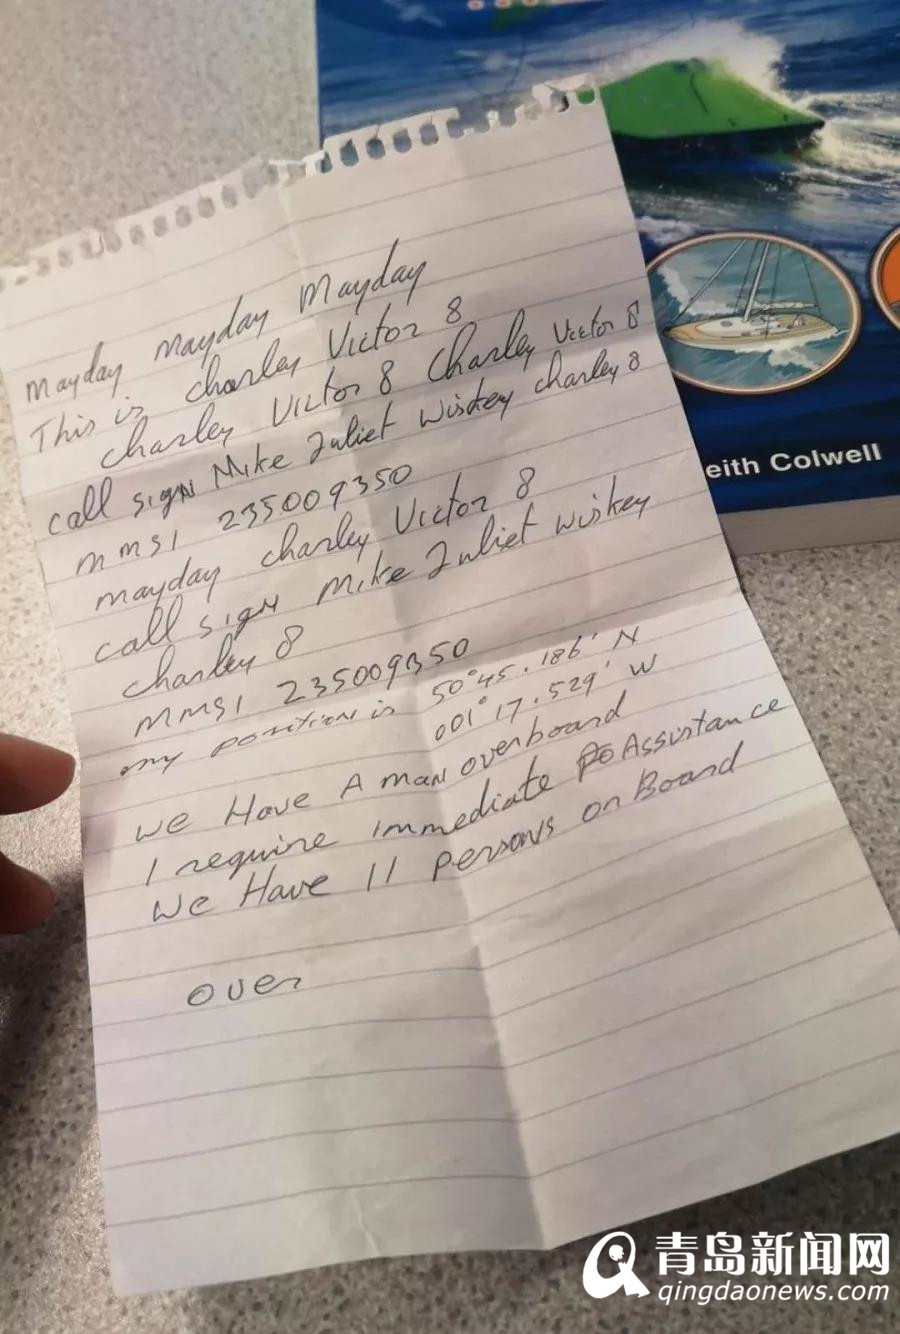 mayday mayday mayday
This is charley Victor 8
charley Victor 8 Charley Victor 8
call sign Mike Juliet wiskey charley 8
mmsi 235009350
mayday charley Victor 8
call sign mike Juliet wiskey
charley 8
mmsi 235009350
my position is 50°45.186' N
001°17.529' W
we Have A man overboard
I require immediate Assistance
We Have 11 persons on Board
over
eith Colwell
青岛新闻网
qingdaonews.com